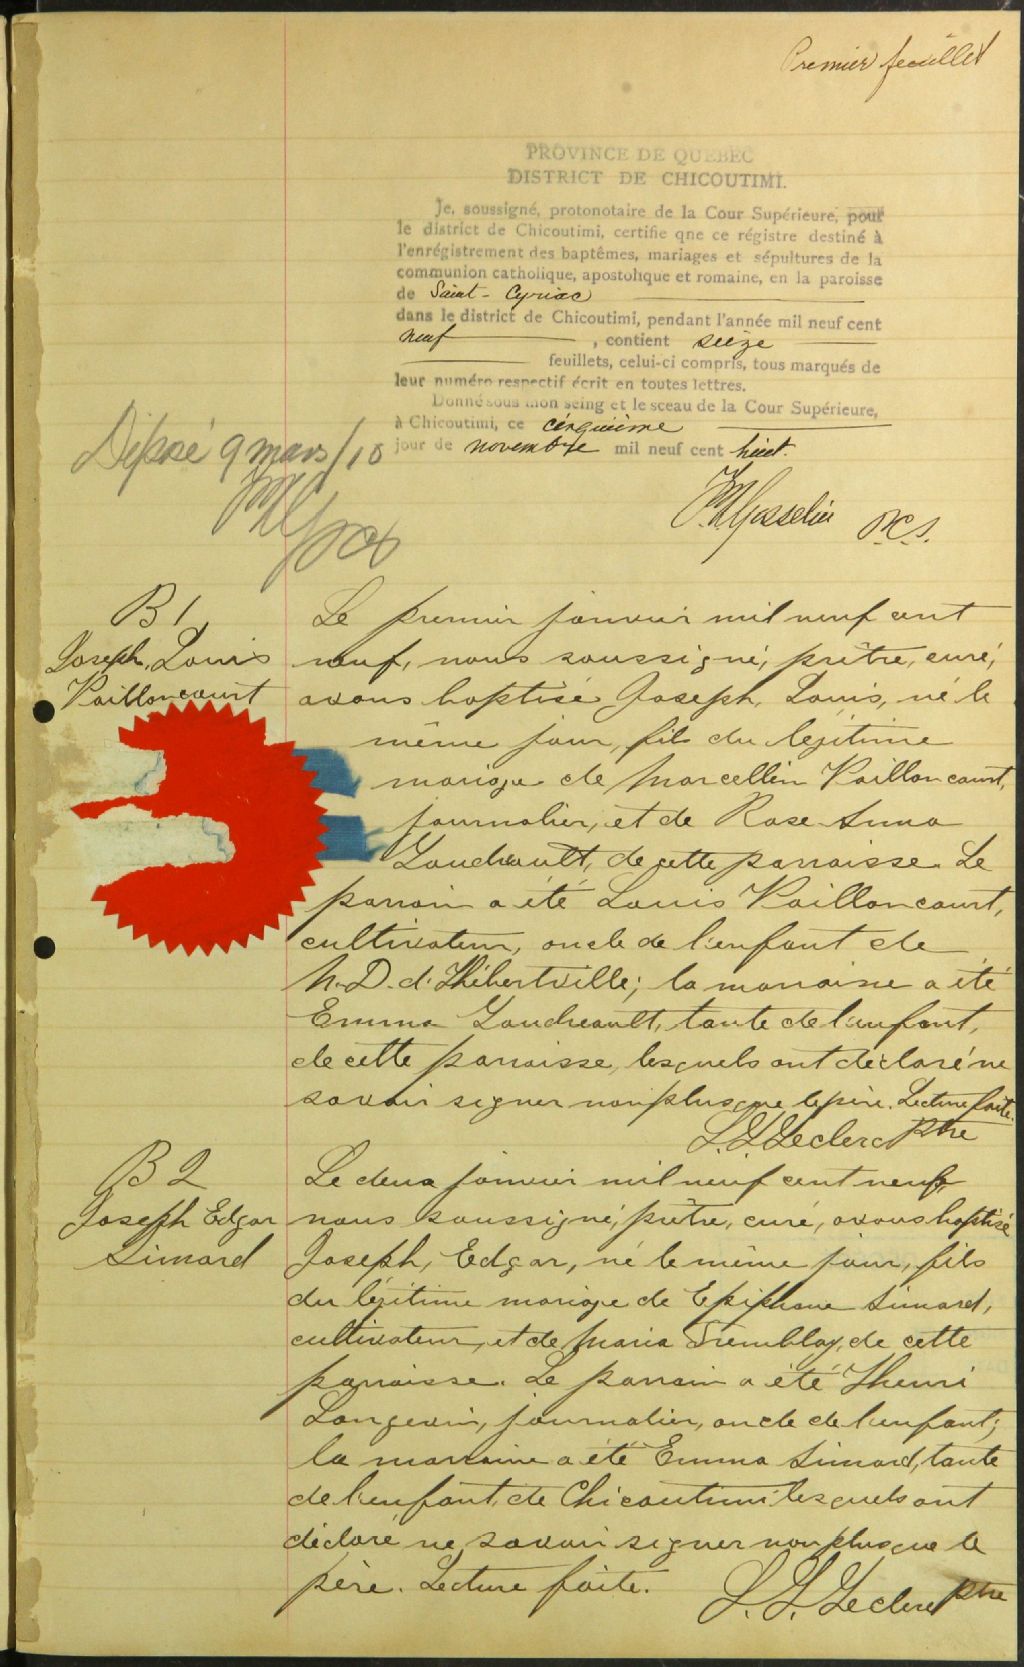 Premier feuillet
PROVINCE DE QUEBEC
DISTRICT DE CHICOUTIMI.
Je, soussigné, protonotaire de la Cour Supérieure, pour
le district de Chicoutimi, certifie qne ce régistre destiné à
l'enrégistrement des baptêmes, mariages et sépultures de la
communion catholique, apostolique et romaine, en la paroisse
de Saint-Cyriac
dans le district de Chicoutimi, pendant l'année mil neuf cent
neuf, contient seize
feuillets, celui-ci compris, tous marqués de
leur numéro respectif écrit en toutes lettres.
Donné sous mon seing et le sceau de la Cour Supérieure,
à Chicoutimi, ce cinquième
jour de novembre mil neuf cent huit.
Déposé 9 mars/10
Gosselin P.C.S.
B 1
Joseph, Louis
Vaillancourt
Le premier janvier mil neuf cent
neuf, nous soussigné, prêtre, curé,
avons baptisé Joseph, Louis, né le
même jour, fils du légitime
mariage de Marcellin Vaillancourt,
journalier, et de Rose-Anna
Gaudreault, de cette parroisse. Le
parrain a été Louis Vaillancourt,
cultivateur, oncle de l'enfant de
N.-D. d'Hébertville; la marraine a été
Emma Gaudreault, tante de l'enfant,
de cette parroisse, lesquels ont déclaré ne
savoir signer non plus que le père. Lecture faite.
Leclerc Ptre
B 2
Joseph Edgar
Simard
Le deux janvier mil neuf cent neuf,
nous soussigné, prêtre, curé, avons baptisé
Joseph, Edgar, né le même jour, fils
du légitime mariage de Epiphane Simard,
cultivateur, et de Maria Tremblay, de cette
parroisse. Le parrain a été Thenri
Langevin, journalier, oncle de l'enfant;
la marraine a été Emma Simard, tante
de l'enfant, de Chicoutimi lesquels ont
déclaré ne savoir signer non plus que le
père. Lecture faite.
Leclerc ptre